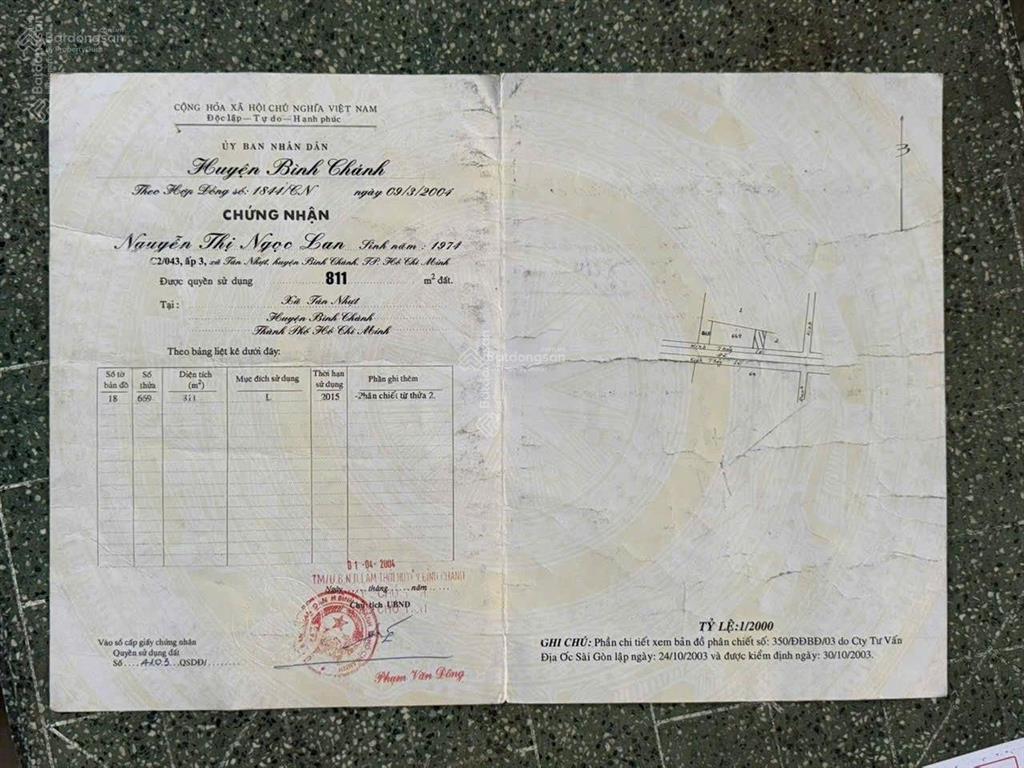 Batdongsan
by PropertyGuru
CỘNG HÒA XÃ HỘI CHỦ NGHĨA VIỆT NAM
Độc lập — Tự do — Hạnh phúc
ỦY BAN NHÂN DÂN
Huyện Bình Chánh
Theo Hợp Đồng số: 1844/CN ngày 09/3/2004
CHỨNG NHẬN
Nguyễn Thị Ngọc Lan Sinh năm : 1974
C2/043, ấp 3, xã Tân Nhựt, huyện Bình Chánh, TP. Hồ Chí Minh
Được quyền sử dụng 811 m² đất.
Tại : Xã Tân Nhựt
Huyện Bình Chánh
Thành Phố Hồ Chí Minh
Theo bảng liệt kê dưới đây:
Số tờ bản đồ Số thửa Diện tích (m²) Mục đích sử dụng Thời hạn sử dụng Phần ghi thêm
18 669 811 L 2015 -Phân chiết từ thửa 2.
01 -04- 2004
Ngày tháng năm
Chủ tịch UBND
Phạm Văn Đông
Vào sổ cấp giấy chứng nhận
Quyền sử dụng đất
Số QSDĐ/
3
1
2
Batdongsan
TỶ LỆ:1/2000
GHI CHÚ: Phần chi tiết xem bản đồ phân chiết số: 350/ĐĐBĐ/03 do Cty Tư Vấn
Địa Ốc Sài Gòn lập ngày: 24/10/2003 và được kiểm định ngày: 30/10/2003.